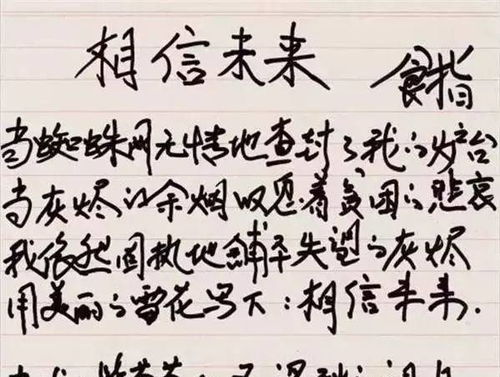 相信未来 食指
当蜘蛛网无情地查封了我的炉台
当灰烬的余烟叹息着贫困的悲哀
我依然固执地铺平失望的灰烬
用美丽的雪花写下：相信未来.